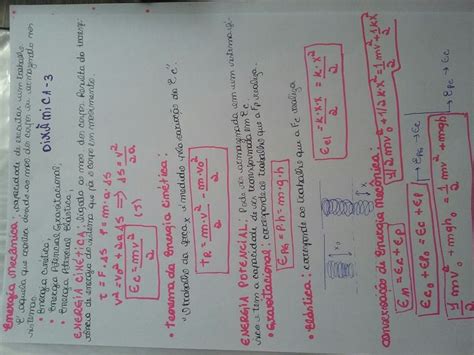 DINÂMICA-3
Energia mecânica: capacidade de executar um trabalho
É aquela que aparece devido ao mov. do corpo ou armazenada nos
sistemas.
• Energia Cinética;
• Energia Potencial Gravitacional;
• Energia Potencial Elástica;
ENERGIA CINÉTICA: ligada ao mov. dos corpos. Resulta da transf.
de energia do sistema que põe o corpo em movimento.
τ = F. ΔS F = m.a. ΔS
v² = v0² + 2a ΔS => ΔS = v²/2a
Ec = m.v²/2 (J)
• Teorema da Energia Cinética:
"O trabalho da força x é medido pela variação da Ec"
τR = m.v²/2 - m.v0²/2
ENERGIA POTENCIAL: Pode ser armazenada em um sistema fí-
sico e tem a capacidade de ser transformada em Ec
• Gravitacional: corresponde ao trabalho que a Fp realiza.
EPG = P.h = m.g.h
• Elástica: corresponde ao trabalho que a Fe realiza
Eel = k.x.x/2 = k.x²/2
Conservação de Energia Mecânica:
Em = Ec + Ep
Ec0 + Ep0 = Ec + Ep